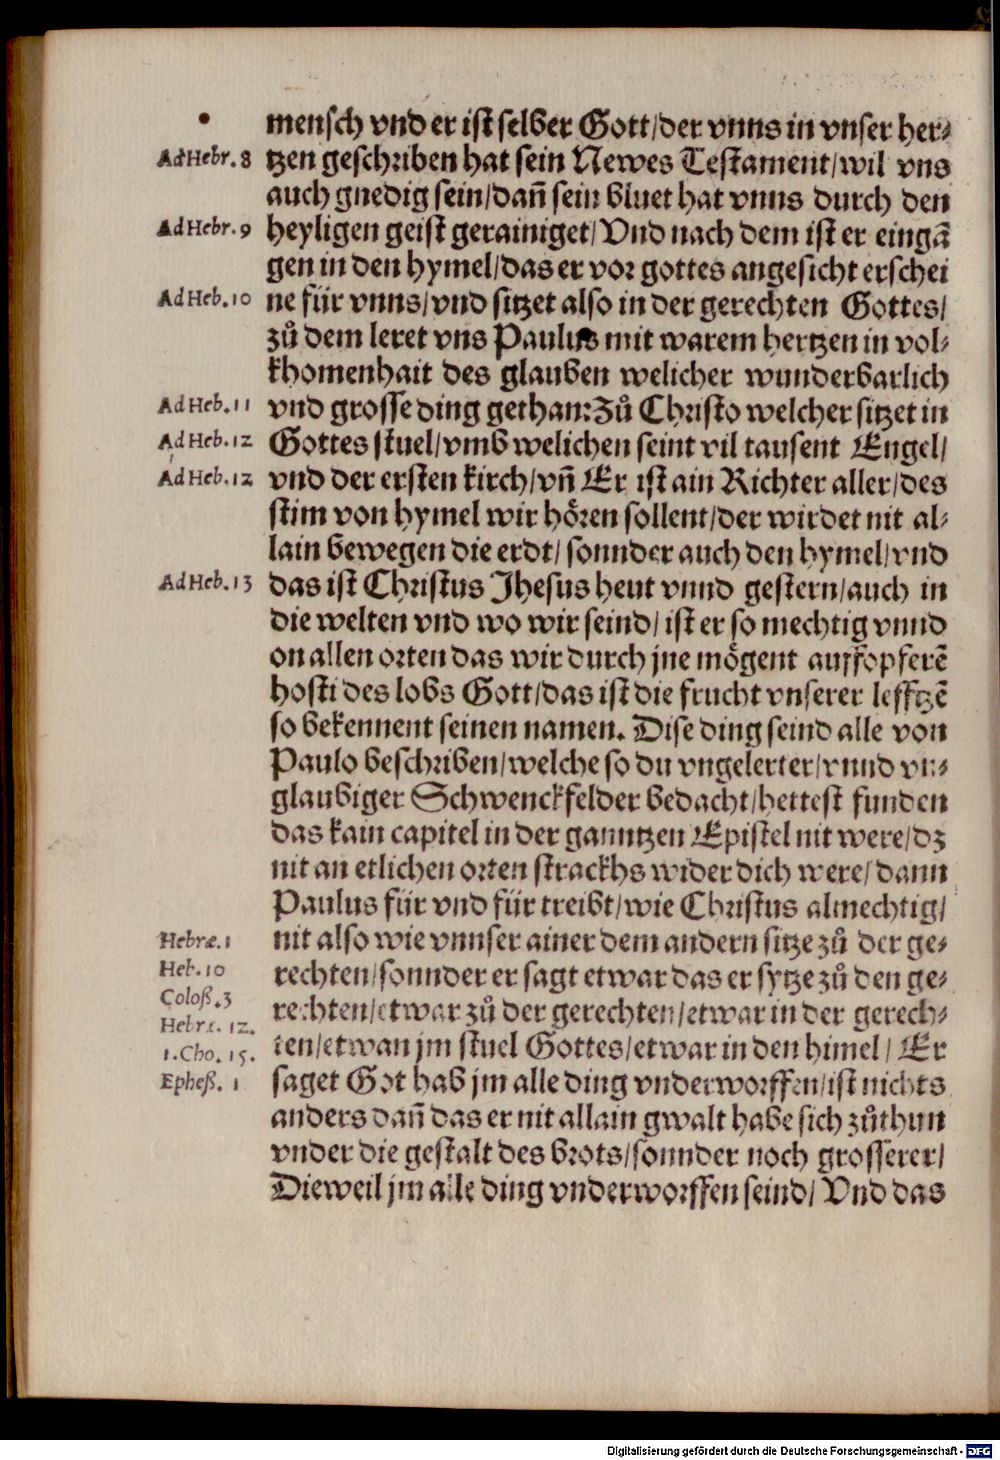 mensch vnd er ist selber Gott/der vnns in vnser her⸗
Ad Hebr. 8 tzen geschriben hat sein Newes Testament/wil vns
auch gnedig sein/dañ sein bluet hat vnns durch den
Ad Hebr. 9 heyligen geist gerainiget/Vnd nach dem ist er eingã
gen in den hymel/das er vor gottes angesicht erschei
Ad Heb. 10 ne für vnns/vnd sitzet also in der gerechten Gottes/
zů dem leret vns Paulus mit warem hertzen in vol⸗
khomenhait des glauben welicher wunderbarlich
Ad Heb. 11 vnd grosse ding gethan:Zů Christo welcher sitzet in
Ad Heb. 12 Gottes stuel/vmb welichen seint vil tausent Engel/
Ad Heb. 12 vnd der ersten kirch/vñ Er ist ain Richter aller/des
stim von hymel wir hören sollent/der wirdet nit al⸗
lain bewegen die erdt/sonnder auch den hymel/vnd
Ad Heb. 13 das ist Christus Jhesus heut vnnd gestern/auch in
die welten vnd wo wir seind/ist er so mechtig vnnd
on allen orten das wir durch jne mögent auffopferẽ
hosti des lobs Gott/das ist die frucht vnserer lefftzẽ
so bekennent seinen namen. Dise ding seind alle von
Paulo beschriben/welche so du vngelerter/vnnd vn⸗
glaubiger Schwenckfelder bedacht/hettest funden
das kain capitel in der ganntzen Epistel nit were/dz
nit an etlichen orten strackhs wider dich were/dann
Paulus für vnd für treibt/wie Christus almechtig/
Hebræ. 1 nit also wie vnnser ainer dem andern sitze zů der ge⸗
Heb. 10 rechten/sonnder er sagt etwar das er sytze zů den ge⸗
Coloß. 3 rechten/etwar zů der gerechten/etwar in der gerech⸗
Hebræ. 12. ten/etwan jm stuel Gottes/etwar in den himel/Er
1. Cho. 15.
Epheß. 1 saget Got hab jm alle ding vnderworffen/ist nichts
anders dañ das er nit allain gwalt habe sich zůthun
vnder die gestalt des brots/sonnder noch grosserer/
Dieweil jm alle ding vnderworffen seind/Vnd das
Digitalisierung gefördert durch die Deutsche Forschungsgemeinschaft - DFG